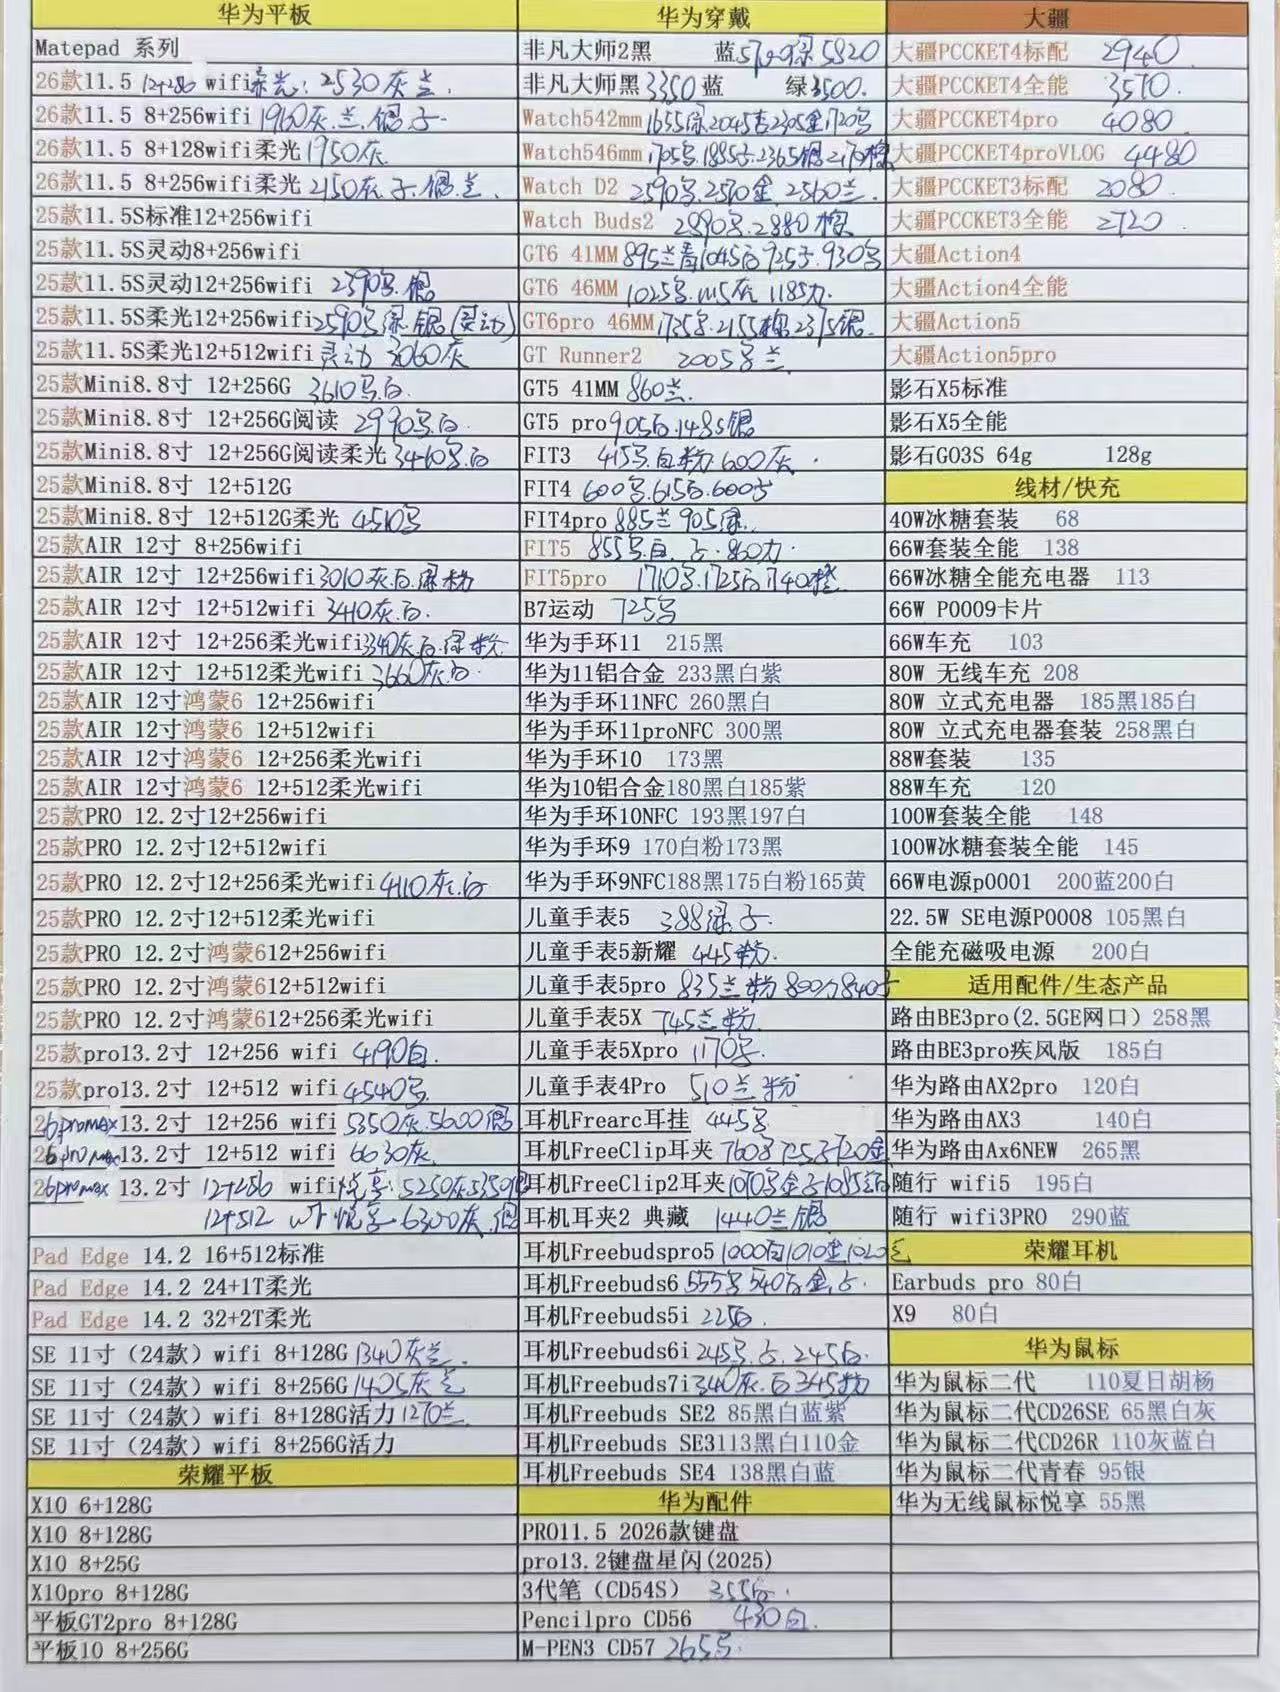 华为平板
Matepad 系列
26款11.5 12+256 wifi柔光: 2530灰兰.
26款11.5 8+256wifi 1960灰.兰.银.子
26款11.5 8+128wifi柔光1950灰
26款11.5 8+256wifi柔光2150灰.子.银.兰.
25款11.5S标准12+256wifi
25款11.5S灵动8+256wifi
25款11.5S灵动12+256wifi 2390号.银
25款11.5S柔光12+256wifi2590号绿.银(灵动)
25款11.5S柔光12+512wifi灵动 3060灰
25款Mini8.8寸 12+256G 3610号白.
25款Mini8.8寸 12+256G阅读 2990号.白.
25款Mini8.8寸 12+256G阅读柔光3410号.白
25款Mini8.8寸 12+512G
25款Mini8.8寸 12+512G柔光 4510号
25款AIR 12寸 8+256wifi
25款AIR 12寸 12+256wifi3010灰白.绿粉
25款AIR 12寸 12+512wifi 3410灰.白.
25款AIR 12寸 12+256柔光wifi3340灰.白.绿粉
25款AIR 12寸 12+512柔光wifi 3660灰.白.
25款AIR 12寸鸿蒙6 12+256wifi
25款AIR 12寸鸿蒙6 12+512wifi
25款AIR 12寸鸿蒙6 12+256柔光wifi
25款AIR 12寸鸿蒙6 12+512柔光wifi
25款PRO 12.2寸12+256wifi
25款PRO 12.2寸12+512wifi
25款PRO 12.2寸12+256柔光wifi 4110灰.白
25款PRO 12.2寸12+512柔光wifi
25款PRO 12.2寸鸿蒙612+256wifi
25款PRO 12.2寸鸿蒙612+512wifi
25款PRO 12.2寸鸿蒙612+256柔光wifi
25款pro13.2寸 12+256 wifi 4190白.
25款pro13.2寸 12+512 wifi 4540号
26promax13.2寸 12+256 wifi 5350灰.5600银
26promax13.2寸 12+512 wifi 6630灰.
26promax 13.2寸 12+256 wifi悦享.5250灰5350银
12+512 wifi 悦享 6300灰.银
Pad Edge 14.2 16+512标准
Pad Edge 14.2 24+1T柔光
Pad Edge 14.2 32+2T柔光
SE 11寸（24款）wifi 8+128G1340灰兰.
SE 11寸（24款）wifi 8+256G1405灰兰
SE 11寸（24款）wifi 8+128G活力1270兰.
SE 11寸（24款）wifi 8+256G活力
荣耀平板
X10 6+128G
X10 8+128G
X10 8+25G
X10pro 8+128G
平板GT2pro 8+128G
平板10 8+256G
华为穿戴
非凡大师2黑 蓝 绿5820
非凡大师黑3350蓝 绿3500.
Watch542mm1655绿2045杏2305金1720号
Watch546mm1705号.1885子.2365银.2170棕
Watch D2 2590号.2570金.2560兰.
Watch Buds2 2890号.2880棕
GT6 41MM 895兰青1045白925子.930号
GT6 46MM 1025号.1115灰 1185力.
GT6pro 46MM1735号.2155棕2375银.
GT Runner2 2005号兰
GT5 41MM 860兰.
GT5 pro905白.1485银
FIT3 415号.白粉600灰.
FIT4 600号.615白.600
FIT4pro 885兰 905绿.
FIT5 855号.白.
FIT5pro 1710号.1725白1740橙
B7运动 725号
华为手环11 215黑
华为11铝合金 233黑白紫
华为手环11NFC 260黑白
华为手环11proNFC 300黑
华为手环10 173黑
华为10铝合金180黑白185紫
华为手环10NFC 193黑197白
华为手环9 170白粉173黑
华为手环9NFC188黑175白粉165黄
儿童手表5 388绿子.
儿童手表5新耀 445粉.
儿童手表5pro 835兰粉800力840子
儿童手表5X 745兰粉.
儿童手表5Xpro 1170号.
儿童手表4Pro 510兰粉
耳机Frearc耳挂 445号
耳机FreeClip耳夹 760号 725子720金
耳机FreeClip2耳夹1070号金子1085白
耳机耳夹2 典藏 1440兰银
耳机Freebudspro5 1000白1010金1020
耳机Freebuds6 555号540白金.
耳机Freebuds5i 225白.
耳机Freebuds6i 245号.
耳机Freebuds7i340灰.白345粉
耳机Freebuds SE2 85黑白蓝紫
耳机Freebuds SE3113黑白110金
耳机Freebuds SE4 138黑白蓝
华为配件
PRO11.5 2026款键盘
pro13.2键盘星闪(2025)
3代笔（CD54S） 355白.
Pencilpro CD56 430白.
M-PEN3 CD57 265号.
大疆
大疆PCCKET4标配 2940
大疆PCCKET4全能 3570.
大疆PCCKET4pro 4080.
大疆PCCKET4proVLOG 4480
大疆PCCKET3标配 2080.
大疆PCCKET3全能 2720.
大疆Action4
大疆Action4全能
大疆Action5
大疆Action5pro
影石X5标准
影石X5全能
影石GO3S 64g 128g
线材/快充
40W冰糖套装 68
66W套装全能 138
66W冰糖全能充电器 113
66W P0009卡片
66W车充 103
80W 无线车充 208
80W 立式充电器 185黑185白
80W 立式充电器套装 258黑白
88W套装 135
88W车充 120
100W套装全能 148
100W冰糖套装全能 145
66W电源p0001 200蓝200白
22.5W SE电源P0008 105黑白
全能充磁吸电源 200白
适用配件/生态产品
路由BE3pro(2.5GE网口）258黑
路由BE3pro疾风版 185白
华为路由AX2pro 120白
华为路由AX3 140白
华为路由Ax6NEW 265黑
随行 wifi5 195白
随行 wifi3PRO 290蓝
荣耀耳机
Earbuds pro 80白
X9 80白
华为鼠标
华为鼠标二代 110夏日胡杨
华为鼠标二代CD26SE 65黑白灰
华为鼠标二代CD26R 110灰蓝白
华为鼠标二代青春 95银
华为无线鼠标悦享 55黑